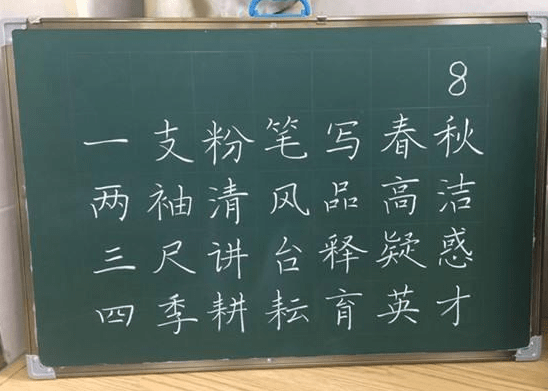 8
一支粉笔写春秋
两袖清风品高洁
三尺讲台释疑惑
四季耕耘育英才